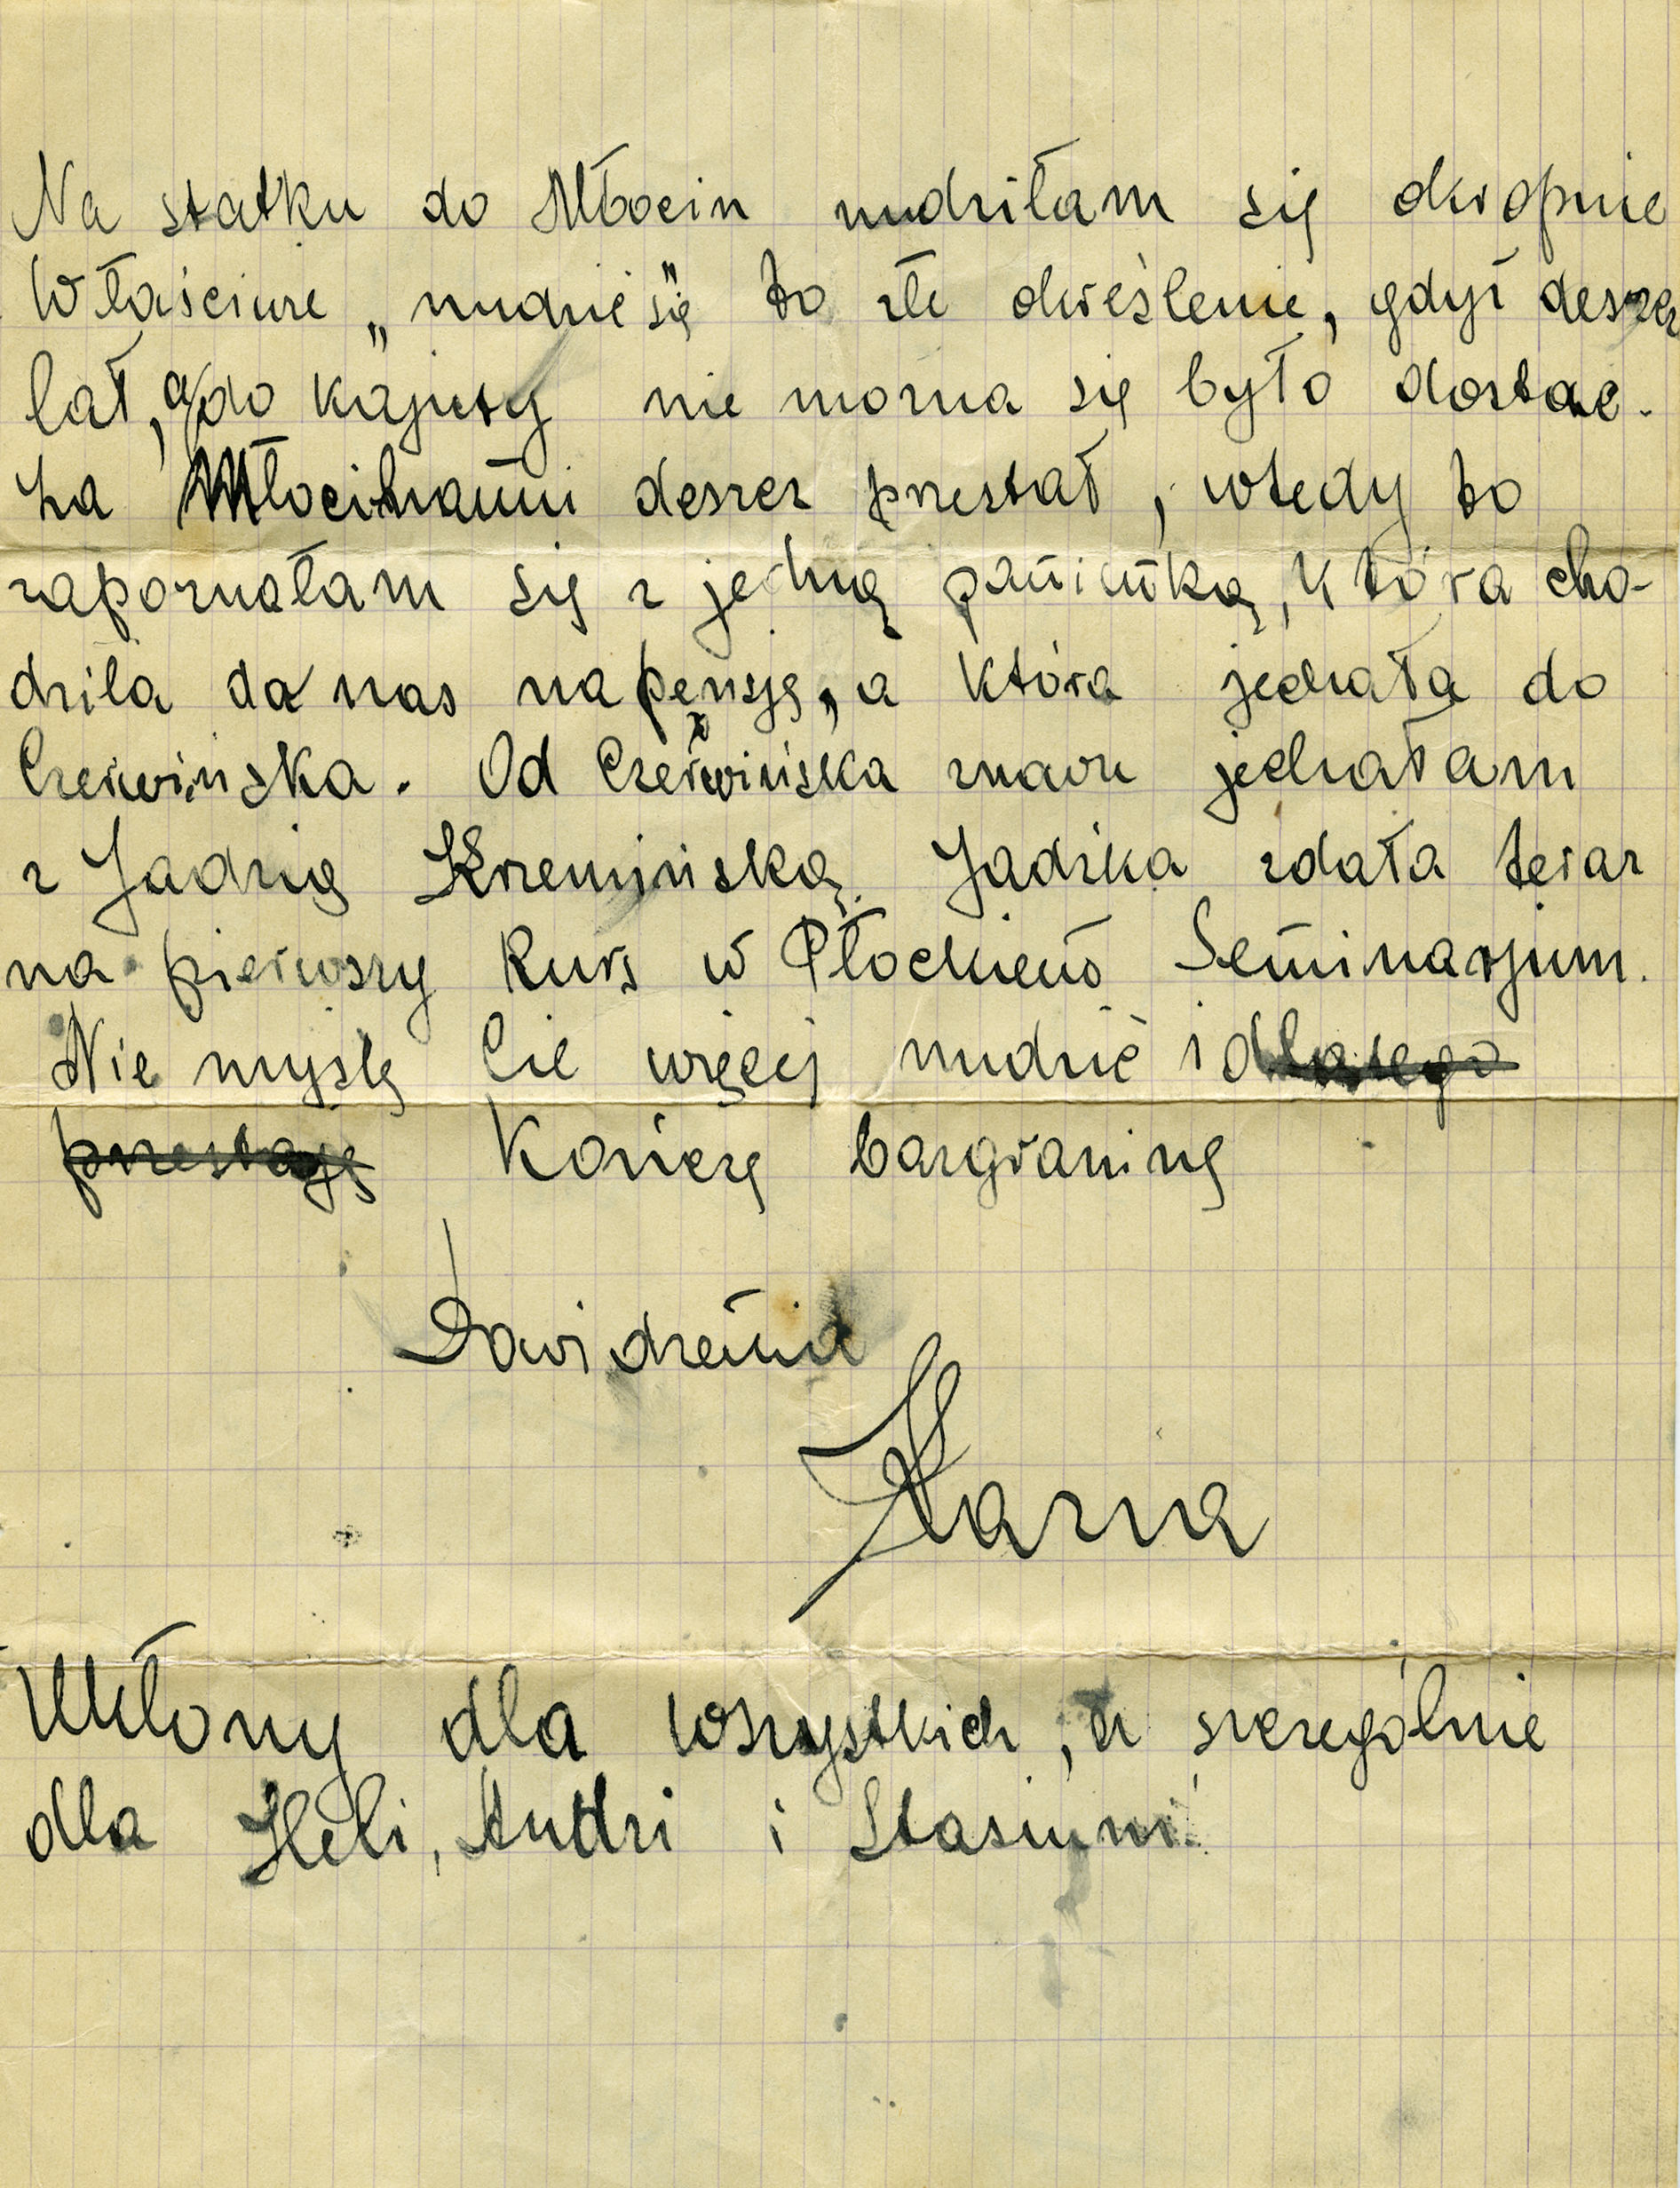 Na statku do Młocin nudziłam się okropnie
Właściwie „nudzić się" to złe określenie, gdyż deszcz
lał, a do kajuty nie można się było dostać.
Za Młocinami deszcz przestał, wtedy to
zapoznałam się z jedną panienką, która cho-
dziła do nas na pensję, a która jechała do
Czerwińska. Od Czerwińska znowu jechałam
z Jadzią Krzemińską. Jadzka zdała teraz
na pierwszy kurs w Płockiem Seminarjum.
Nie myślę Cię więcej nudzić i dlatego
przestaję Kończę bazgraninę
Dowidzenia
Hanna
Ukłony dla wszystkich, a szczególnie
dla Heli, Andzi i Stasiuni